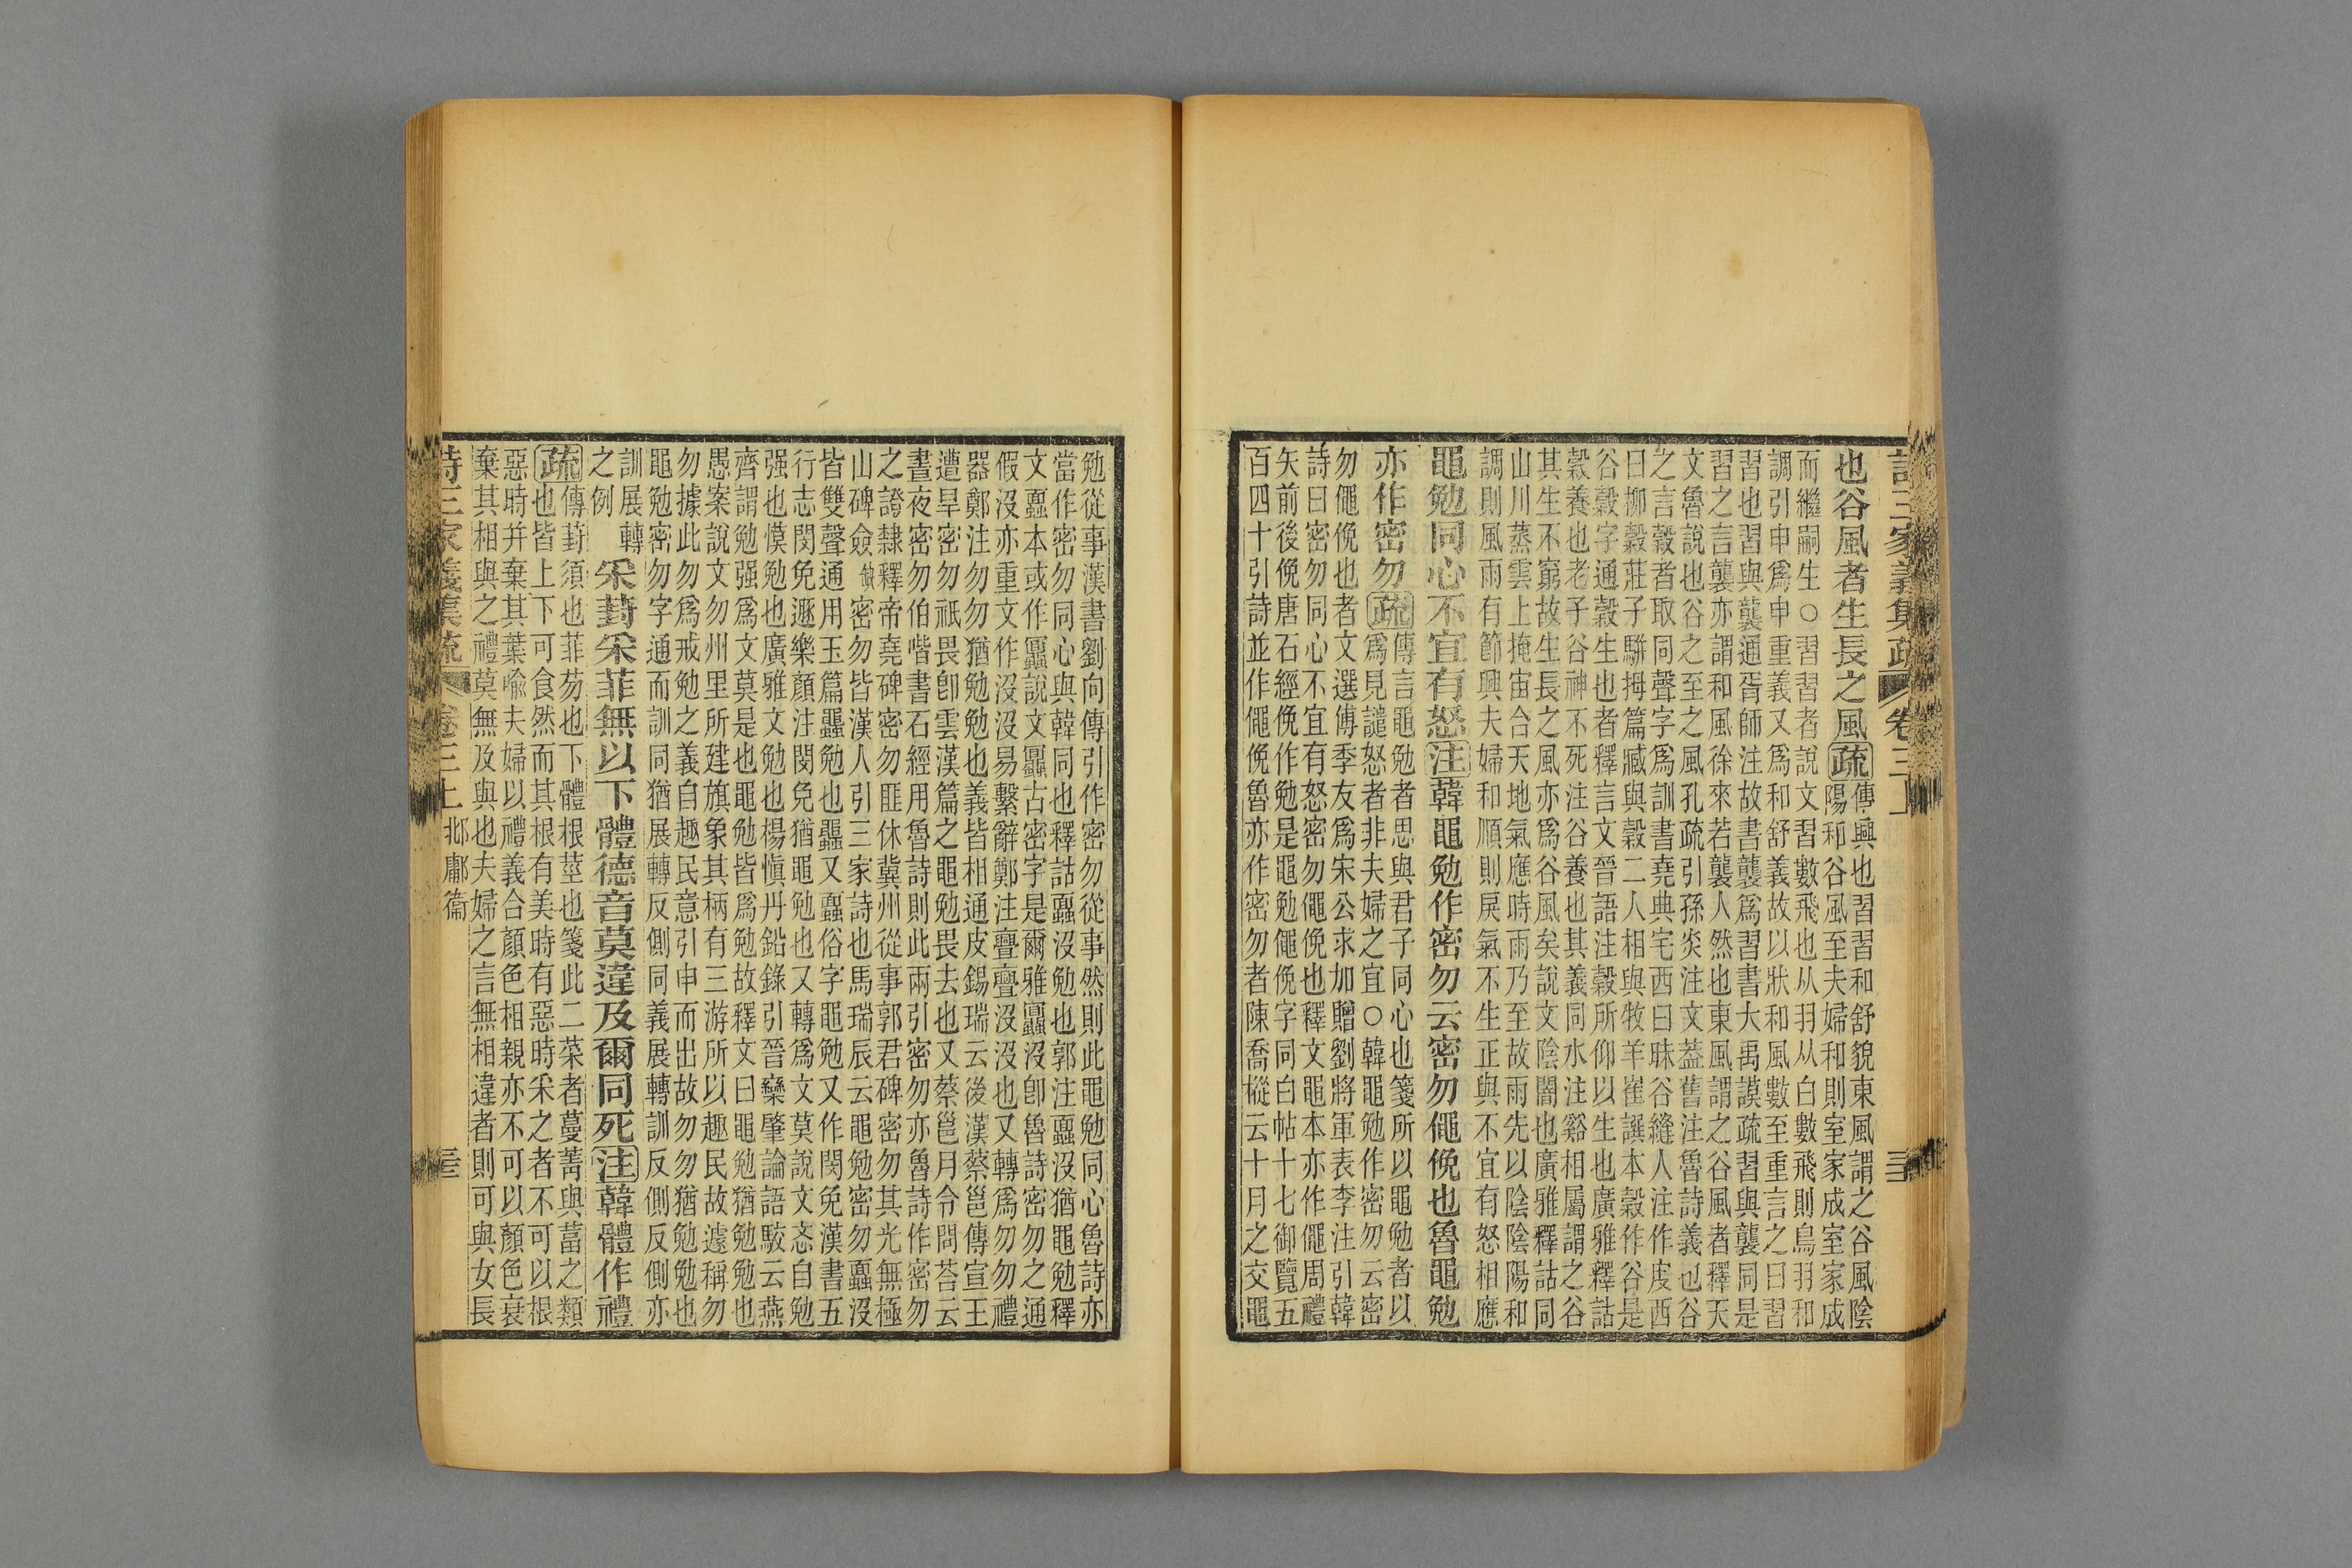 詩三家義集疏 卷三上
也谷風者生長之風疏傳興也習習和舒貌東風謂之谷風陰
陽和谷風至夫婦和則室家成室家成
而繼嗣生○習習者說文習數飛也从羽从白數飛則鳥羽和
調引申爲申重義又爲和舒義故以狀和風數至重言之曰習
習也習與襲通胥師注故書襲爲習書大禹謨疏習與襲同是
習之言襲亦謂和風徐來若襲人然也東風謂之谷風者釋天
文魯說也谷之至之風孔疏引孫炎注文葢舊注魯詩義也谷
之言穀穀者取同聲字爲訓書堯典宅西曰昧谷縫人注作度西
曰柳穀莊子駢拇篇臧與穀二人相與牧羊崔譔本穀作谷是
谷穀字通穀生也者釋言文晉語注穀所仰以生也廣雅釋詁
穀養也老子谷神不死注谷養也其義同水注谿相屬謂之谷
其生不窮故生長之風亦爲谷風矣說文陰闇也廣雅釋詁同
山川蒸雲上掩宙合天地氣應時雨乃至故雨先以陰陰陽和
調則風雨有節興夫婦和順則戾氣不生正與不宜有怒相應
黽勉同心不宜有怒注韓黽勉作密勿云密勿僶俛也魯黽勉
亦作密勿疏傳言黽勉者思與君子同心也箋所以黽勉者以
爲見譴怒者非夫婦之宜○韓黽勉作密勿云密
勿僶俛也者文選傅季友爲宋公求加贈劉將軍表李注引韓
詩曰密勿同心不宜有怒密勿僶俛也釋文黽本亦作僶周禮
矢前後俛唐石經俛作勉是黽勉僶俛字同白帖十七御覽五
百四十引詩並作僶俛魯亦作密勿者陳喬樅云十月之交黽
勉從事漢書劉向傳引作密勿從事然則此黽勉同心魯詩亦
當作密勿同心與韓同也釋詁蠠沒勉也郭注蠠沒猶黽勉釋
文蠠本或作䘌說文䘌古密字是爾雅䘌沒卽魯詩密勿之通
假沒亦重文作沒沒易繫辭鄭注亹亹沒沒也又轉爲勿勿禮
器鄭注勿勿猶勉勉也義皆相通皮錫瑞云後漢蔡邕傳宣王
遭旱密勿祇畏卽雲漢篇之黽勉畏去也又蔡邕月令問荅云
晝夜密勿伯喈書石經用魯詩則此兩引密勿亦魯詩作密勿
之證隸釋帝堯碑密勿匪休冀州從事郭君碑密勿其光無極
山碑僉歔密勿皆漢人引三家詩也馬瑞辰云黽勉密勿蠠沒
皆雙聲通用玉篇䘌勉也䘌又蠠俗字黽勉又作閔免漢書五
行志閔免遯樂顏注閔免猶黽勉也又轉爲文莫說文忞自勉
强也慔勉也廣雅文勉也楊愼丹鉛錄引晉欒肇論語駁云燕
齊謂勉强爲文莫是也黽勉皆爲勉故釋文曰黽勉猶勉勉也
愚案說文勿州里所建旗象其柄有三游所以趣民故遽稱勿
勿據此勿爲戒勉之義自趣民意引申而出故勿勿猶勉勉也
黽勉密勿字通而訓同猶展轉反側同義展轉訓反側反側亦
訓展轉
之例 采葑采菲無以下體德音莫違及爾同死注韓體作禮
疏傳葑須也菲芴也下體根莖也箋此二菜者蔓菁與葍之類
也皆上下可食然而其根有美時有惡時采之者不可以根
惡時并棄其葉喩夫婦以禮義合顏色相親亦不可以顏色衰
棄其相與之禮莫無及與也夫婦之言無相違者則可與女長
詩三家義集疏 卷三上 邶鄘衞